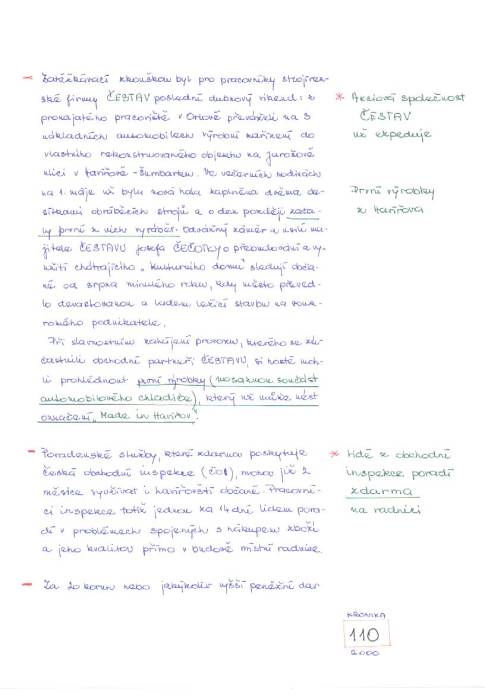 - Zatěžkávací zkouškou byl pro pracovníky strojíren-
ské firmy ČESTAV poslední dubnový víkend: z
pronajatého pracoviště v Orlové převáželi na 3
nákladních automobilech výrobní zařízení do
vlastního rekonstruovaného objektu na Jurošově
ulici v Havířově-Šumbarku. Ve večerních hodinách
na 1. máje už byla nová hala zaplněna dvěma de-
sítkami obráběcích strojů a o den později zača-
ly první z nich vyrábět. Odvážný záměr a úsilí ma-
jitele ČESTAVU Josefa ČEČOTKY o přebudování a vy-
užití chátrajícího "kulturního domu" sledují obča-
né od srpna minulého roku, kdy město převed-
lo devastovanou a ladem ležící stavbu na souk-
romého podnikatele.
Při slavnostním zahájení provozu, kterého se zú-
častnili obchodní partneři ČESTAVU, si hosté moh-
li prohlédnout první výrobky (mosaznou součást
automobilového chladiče), který už může nést
označení "Made in Havířov".
* Akciová společnost
ČESTAV
už expeduje
První výrobky
z Havířova
- Poradenské služby, které zdarma poskytuje
Česká obchodní inspekce (ČOI), mohou již 2
měsíce využívat i havířovští občané. Pracovní-
ci inspekce totiž jednou za 14 dní lidem pora-
dí v problémech spojených s nákupem zboží
a jeho kvalitou přímo v budově místní radnice.
* Lidé z obchodní
inspekce poradí
zdarma
na radnici
- Za 20 korun nebo jakýkoliv vyšší peněžní dar
KRONIKA
110
2000